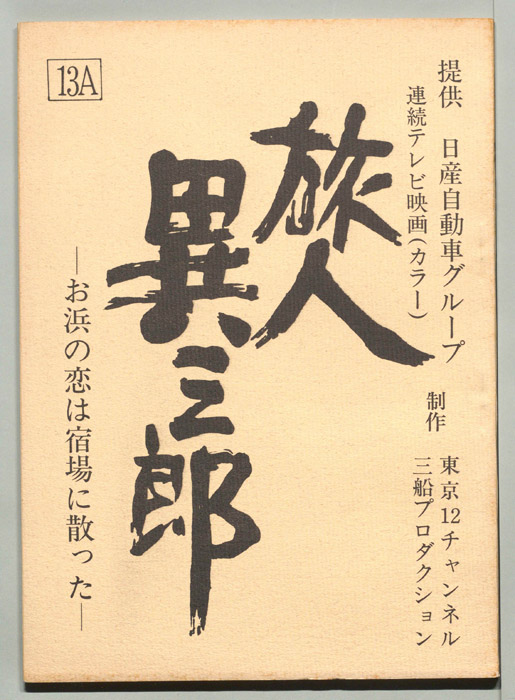 提供 日産自動車グループ
連続テレビ映画(カラー)
制作 東京12チャンネル
三船プロダクション
旅人
異三郎
―お浜の恋は宿場に散った―
13A